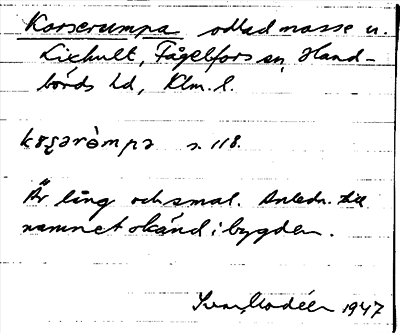 Korserumpa odlad mosse u.
Lixhult, Fågelfors sn, Hand-
börds hd, Klm. l.
kɷʂərùmpa s. 118.
Är lång och smal. Anledn. till
namnet okänd i bygden.
Ivar Modéer 1947